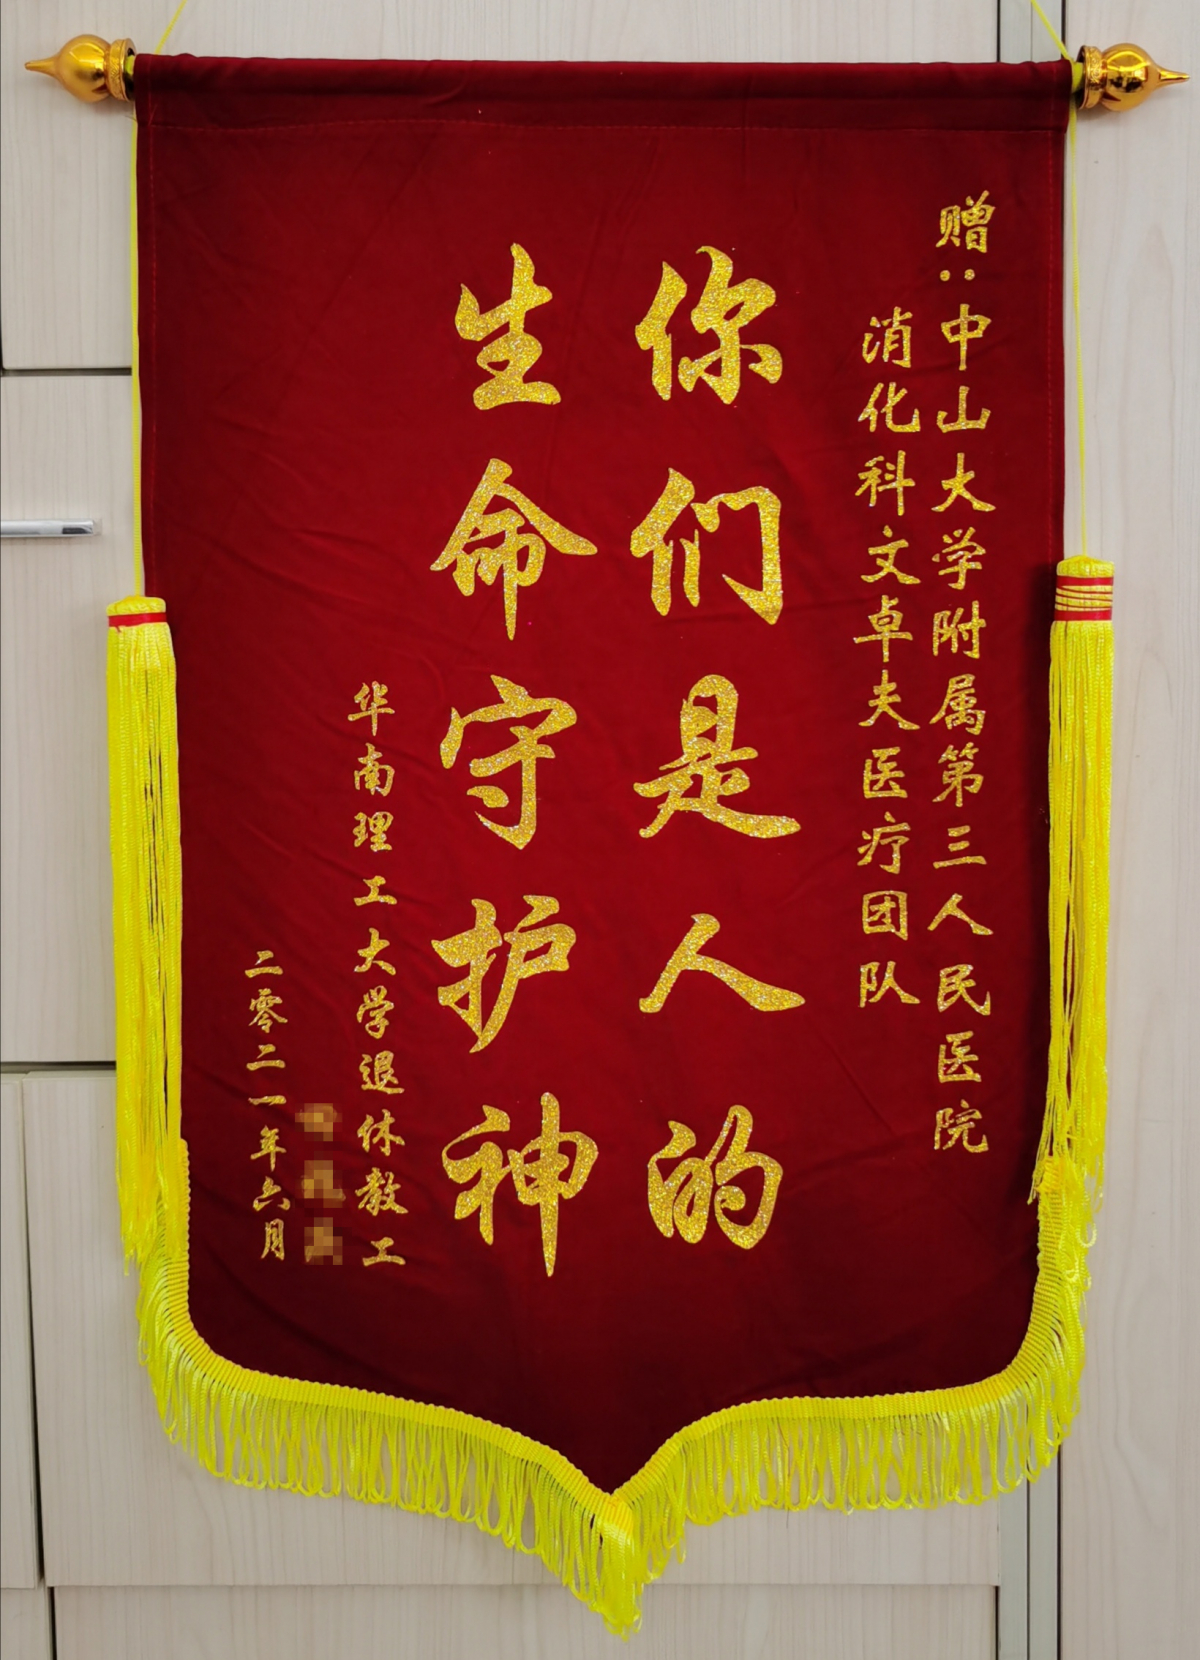 赠：中山大学附属第三人民医院
消化科文卓夫医疗团队
你们是人的
生命守护神
华南理工大学退休教工
二零二一年六月